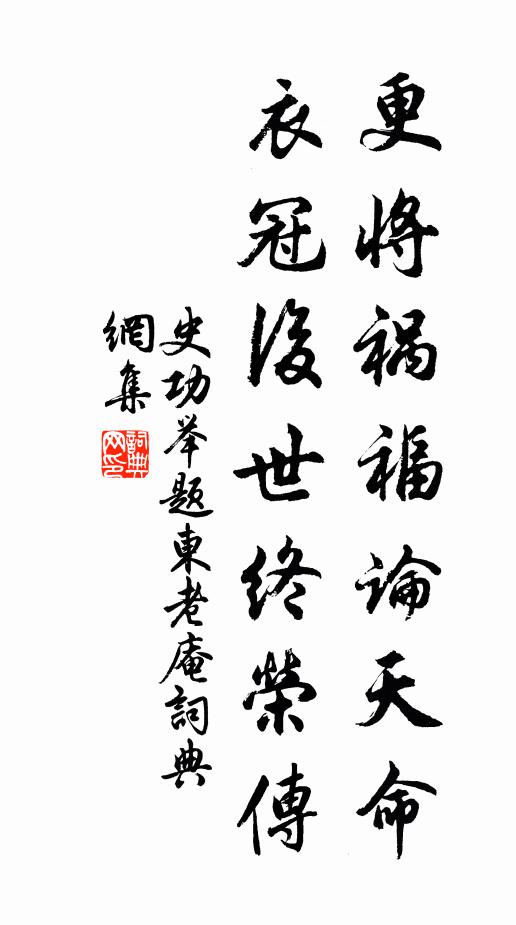 更將禍福論天命
衣冠後世終榮傳
史功举題東老庵詞典
網集
詞典
网印